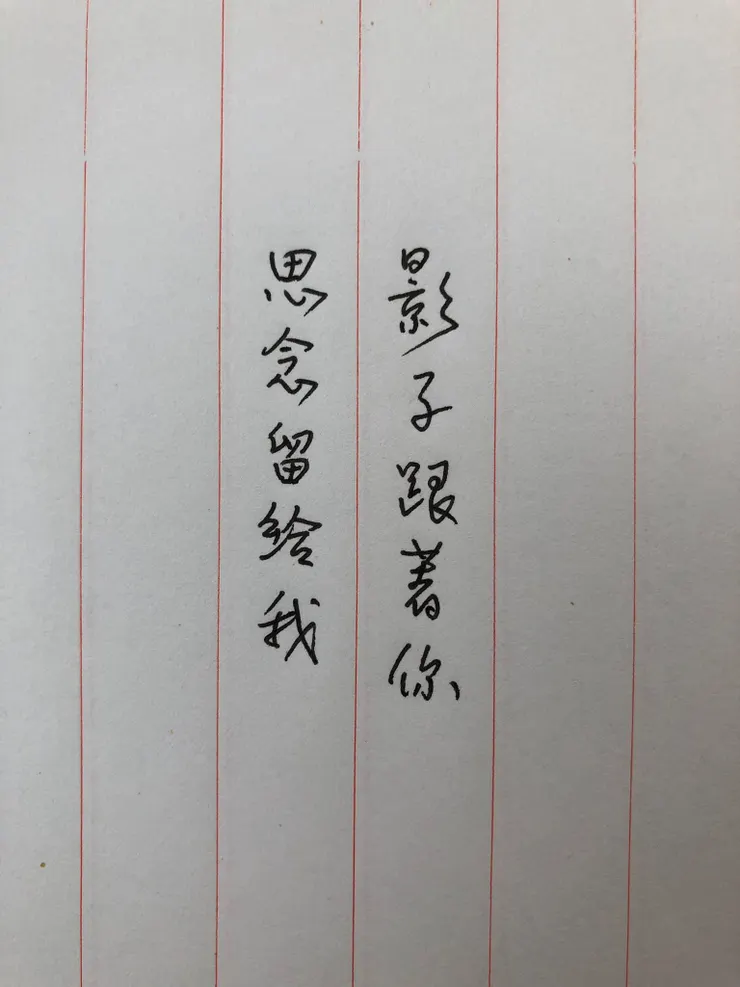 影子跟着你
思念留给我